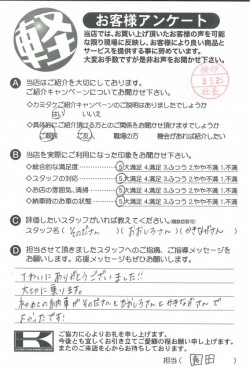 軽
お客様アンケート
当店では、お買い上げ頂いたお客様の声を可能
な限り現場に反映し、お客様により良い商品と
サービスを提供する事に努めています。
大変お手数ですが是非お声をお聞かせ下さい。
検印
社長
A 当店はご紹介を大切にしております。
ご紹介キャンペーンについてお聞かせ下さい。
◇カミタケご紹介キャンペーンのご説明はありましたでしょうか
はい いいえ
◇具体的にご紹介頂ける方とのご関係をお聞かせ下さい
ご親族 ご友人 職場の方 機会があれば紹介したい
B 当店を実際にご利用になった印象をお聞かせ下さい。
◇総合的な満足度 5.大満足 4.満足 3.ふつう 2.やや不満 1.不満
◇スタッフの対応 5.大満足 4.満足 3.ふつう 2.やや不満 1.不満
◇お店の雰囲気、清掃 5.大満足 4.満足 3.ふつう 2.やや不満 1.不満
◇納車時のお車の状態 5.大満足 4.満足 3.ふつう 2.やや不満 1.不満
C 評価したいスタッフがいれば教えてください。(複数回答可)
スタッフ名( そのださん )( おおしろさん )( かきながさん )
D 担当させて頂きましたスタッフへのご指摘、ご指導メッセージを
お願いします。応援メッセージもぜひお願いします。
ていねいにありがとうございました!!
大切に乗ります。
初めての納車がそのださんとおおしろさんとかきながさんで
よかったです!
K
ご協力に心よりお礼を申し上げます。
今後とも宜しくお引き立てご愛顧の程お願い申し上げます。
またのご来店を心からお待ちしております。
担当( 園田 )